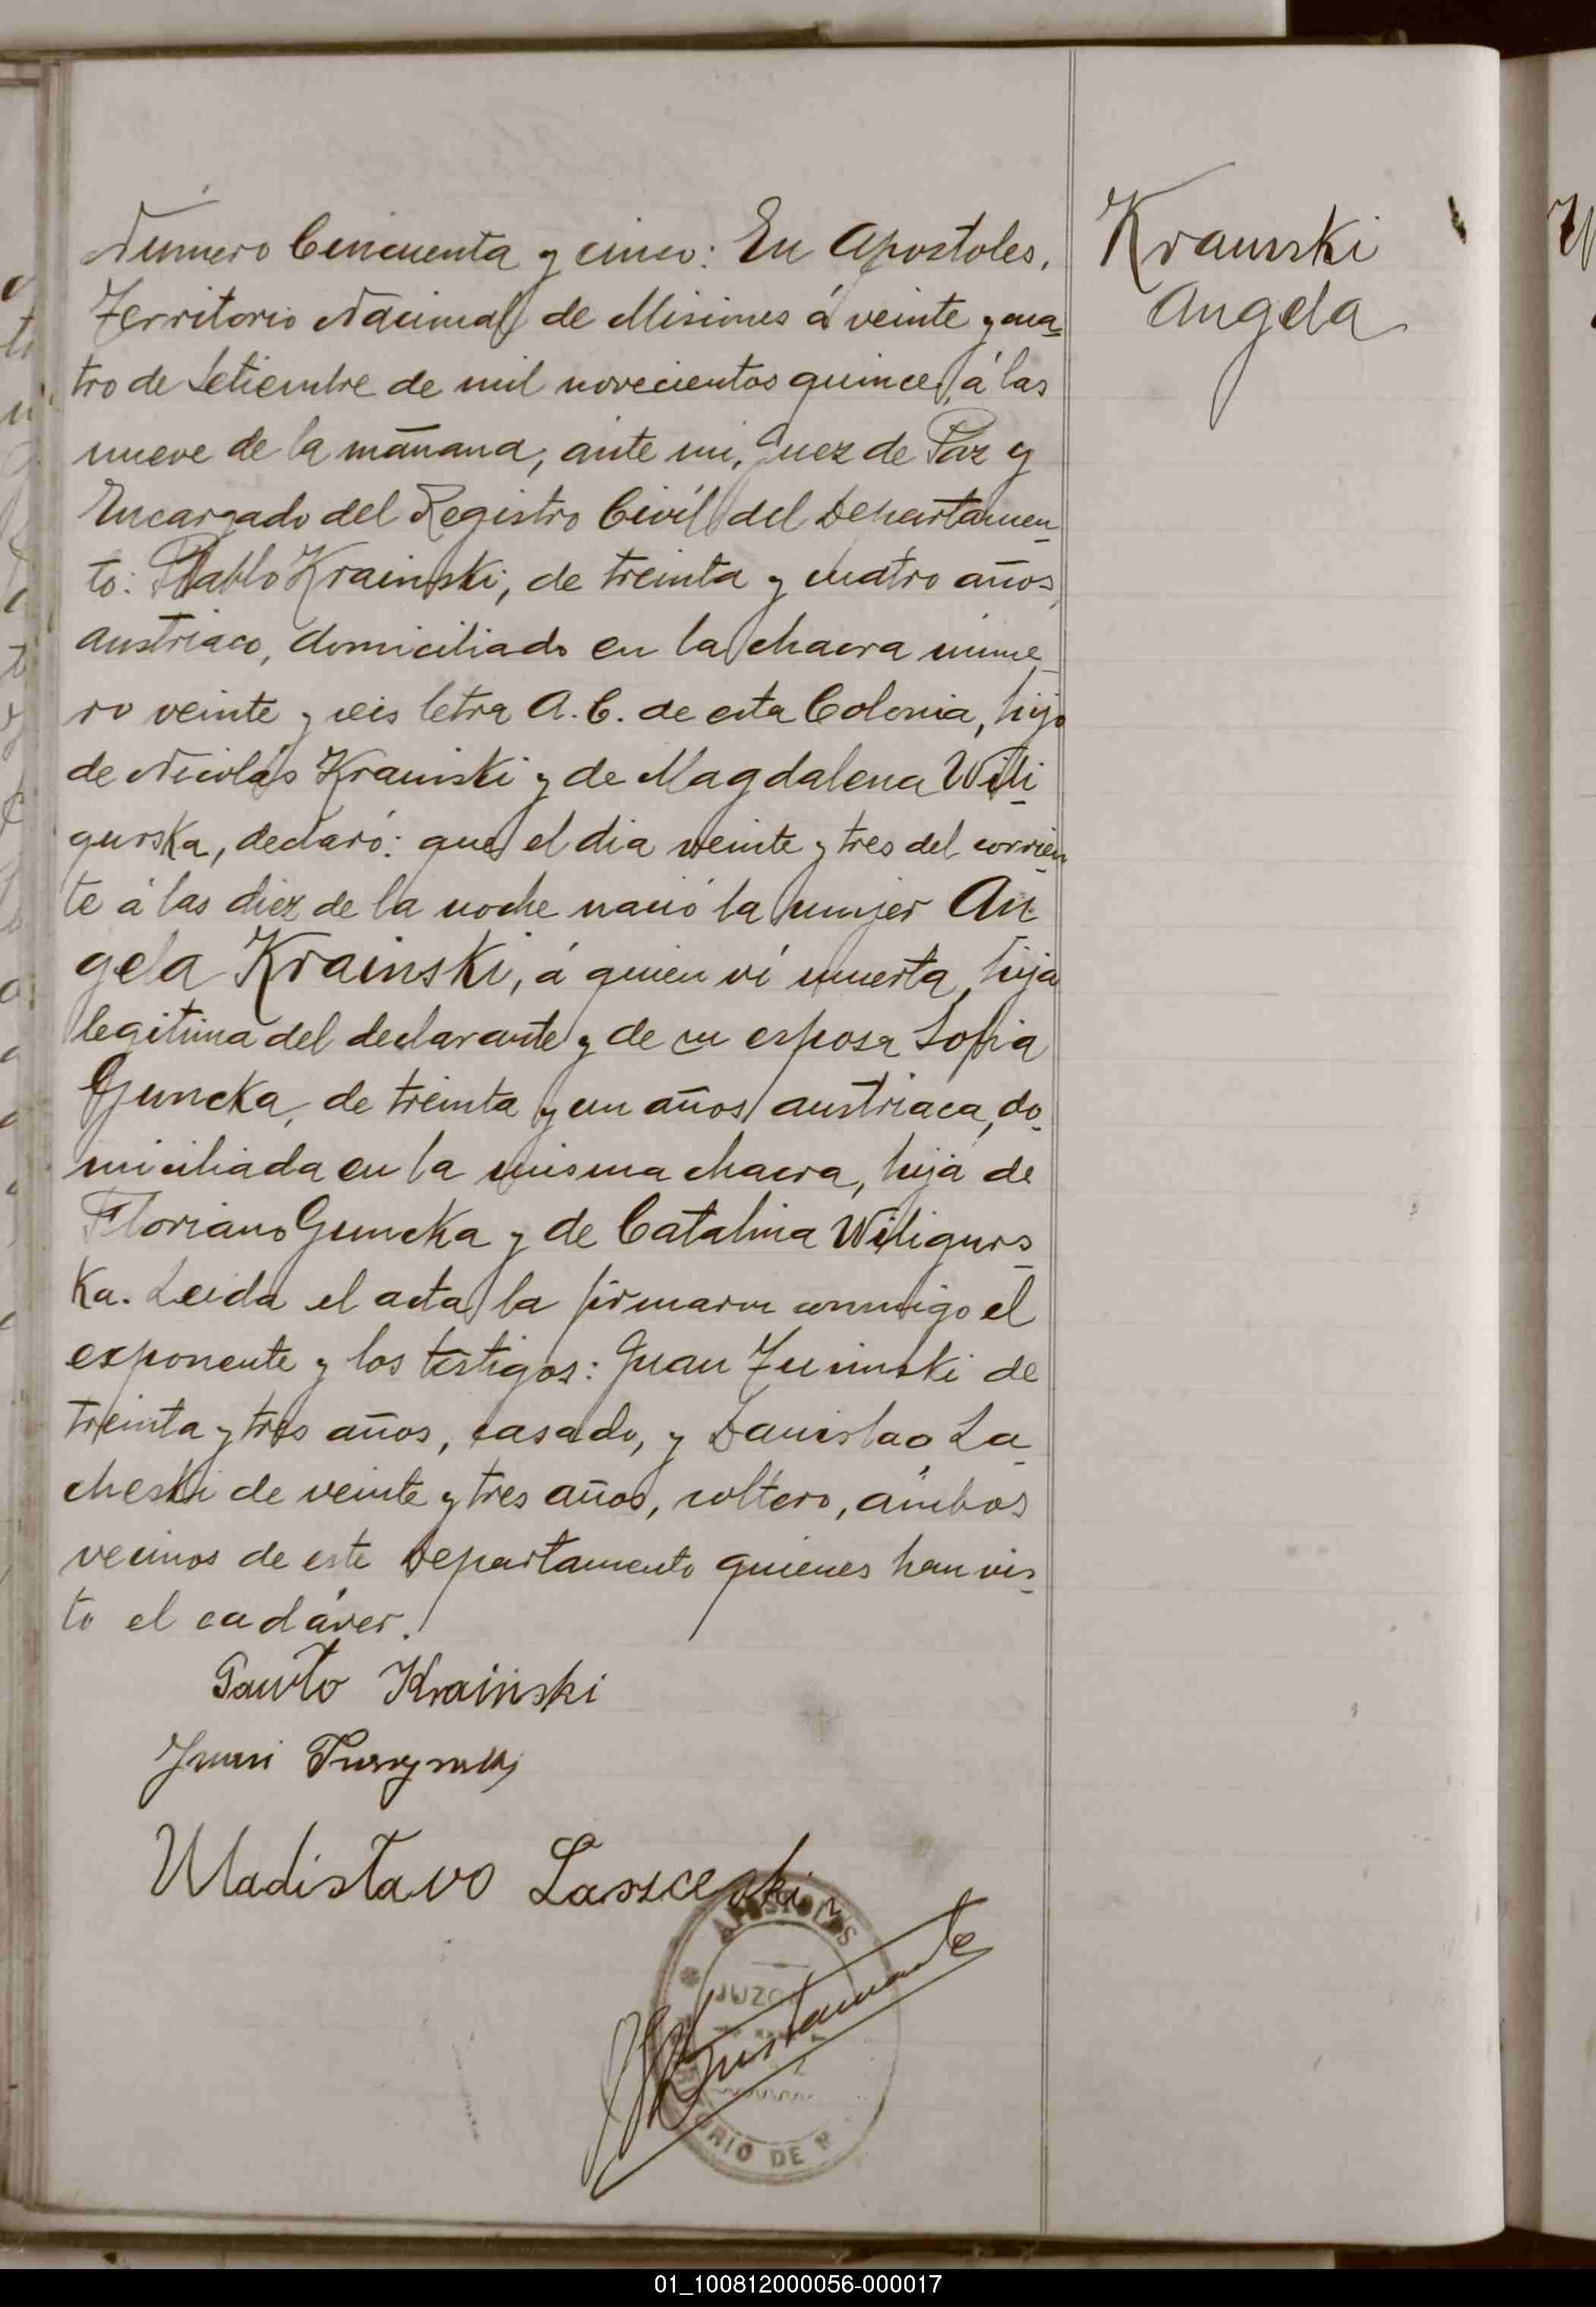 Número Cincuenta y cinco: En Apostoles,
Territorio Nacional de Misiones á veinte y cua
tro de Setiembre de mil novecientos quince, á las
nueve de la mañana, ante mi, Juez de Paz y
Encargado del Registro Civil del Departamen
to: Pablo Krainski, de treinta y cuatro años,
austriaco, domiciliado en la chacra núme
ro veinte y seis letra A.C. de esta Colonia, hijo
de Nicolás Krainski y de Magdalena Wili
gurska, declaró: que el dia veinte y tres del corrien
te á las diez de la noche nació la mujer An
gela Krainski, á quien ví muerta, hija
legitima del declarante y de su esposa Sofia
Guncka, de treinta y un años, austriaca, do
miciliada en la misma chacra, hija de
Floriano Guncka y de Catalina Wiligurs
ka. Leida el acta la firmaron conmigo el
exponente y los testigos: Juan Turinski de
treinta y tres años, casado, y Danislao La
cheski de veinte y tres años, soltero, ámbos
vecinos de este Departamento quienes han vis
to el cadáver.
Pawło Kraiński
Władisławo Laszceski
APOSTOLES
JUZG
Bustamante
ORIO DE M
Krainski
Angela
01_100812000056-000017